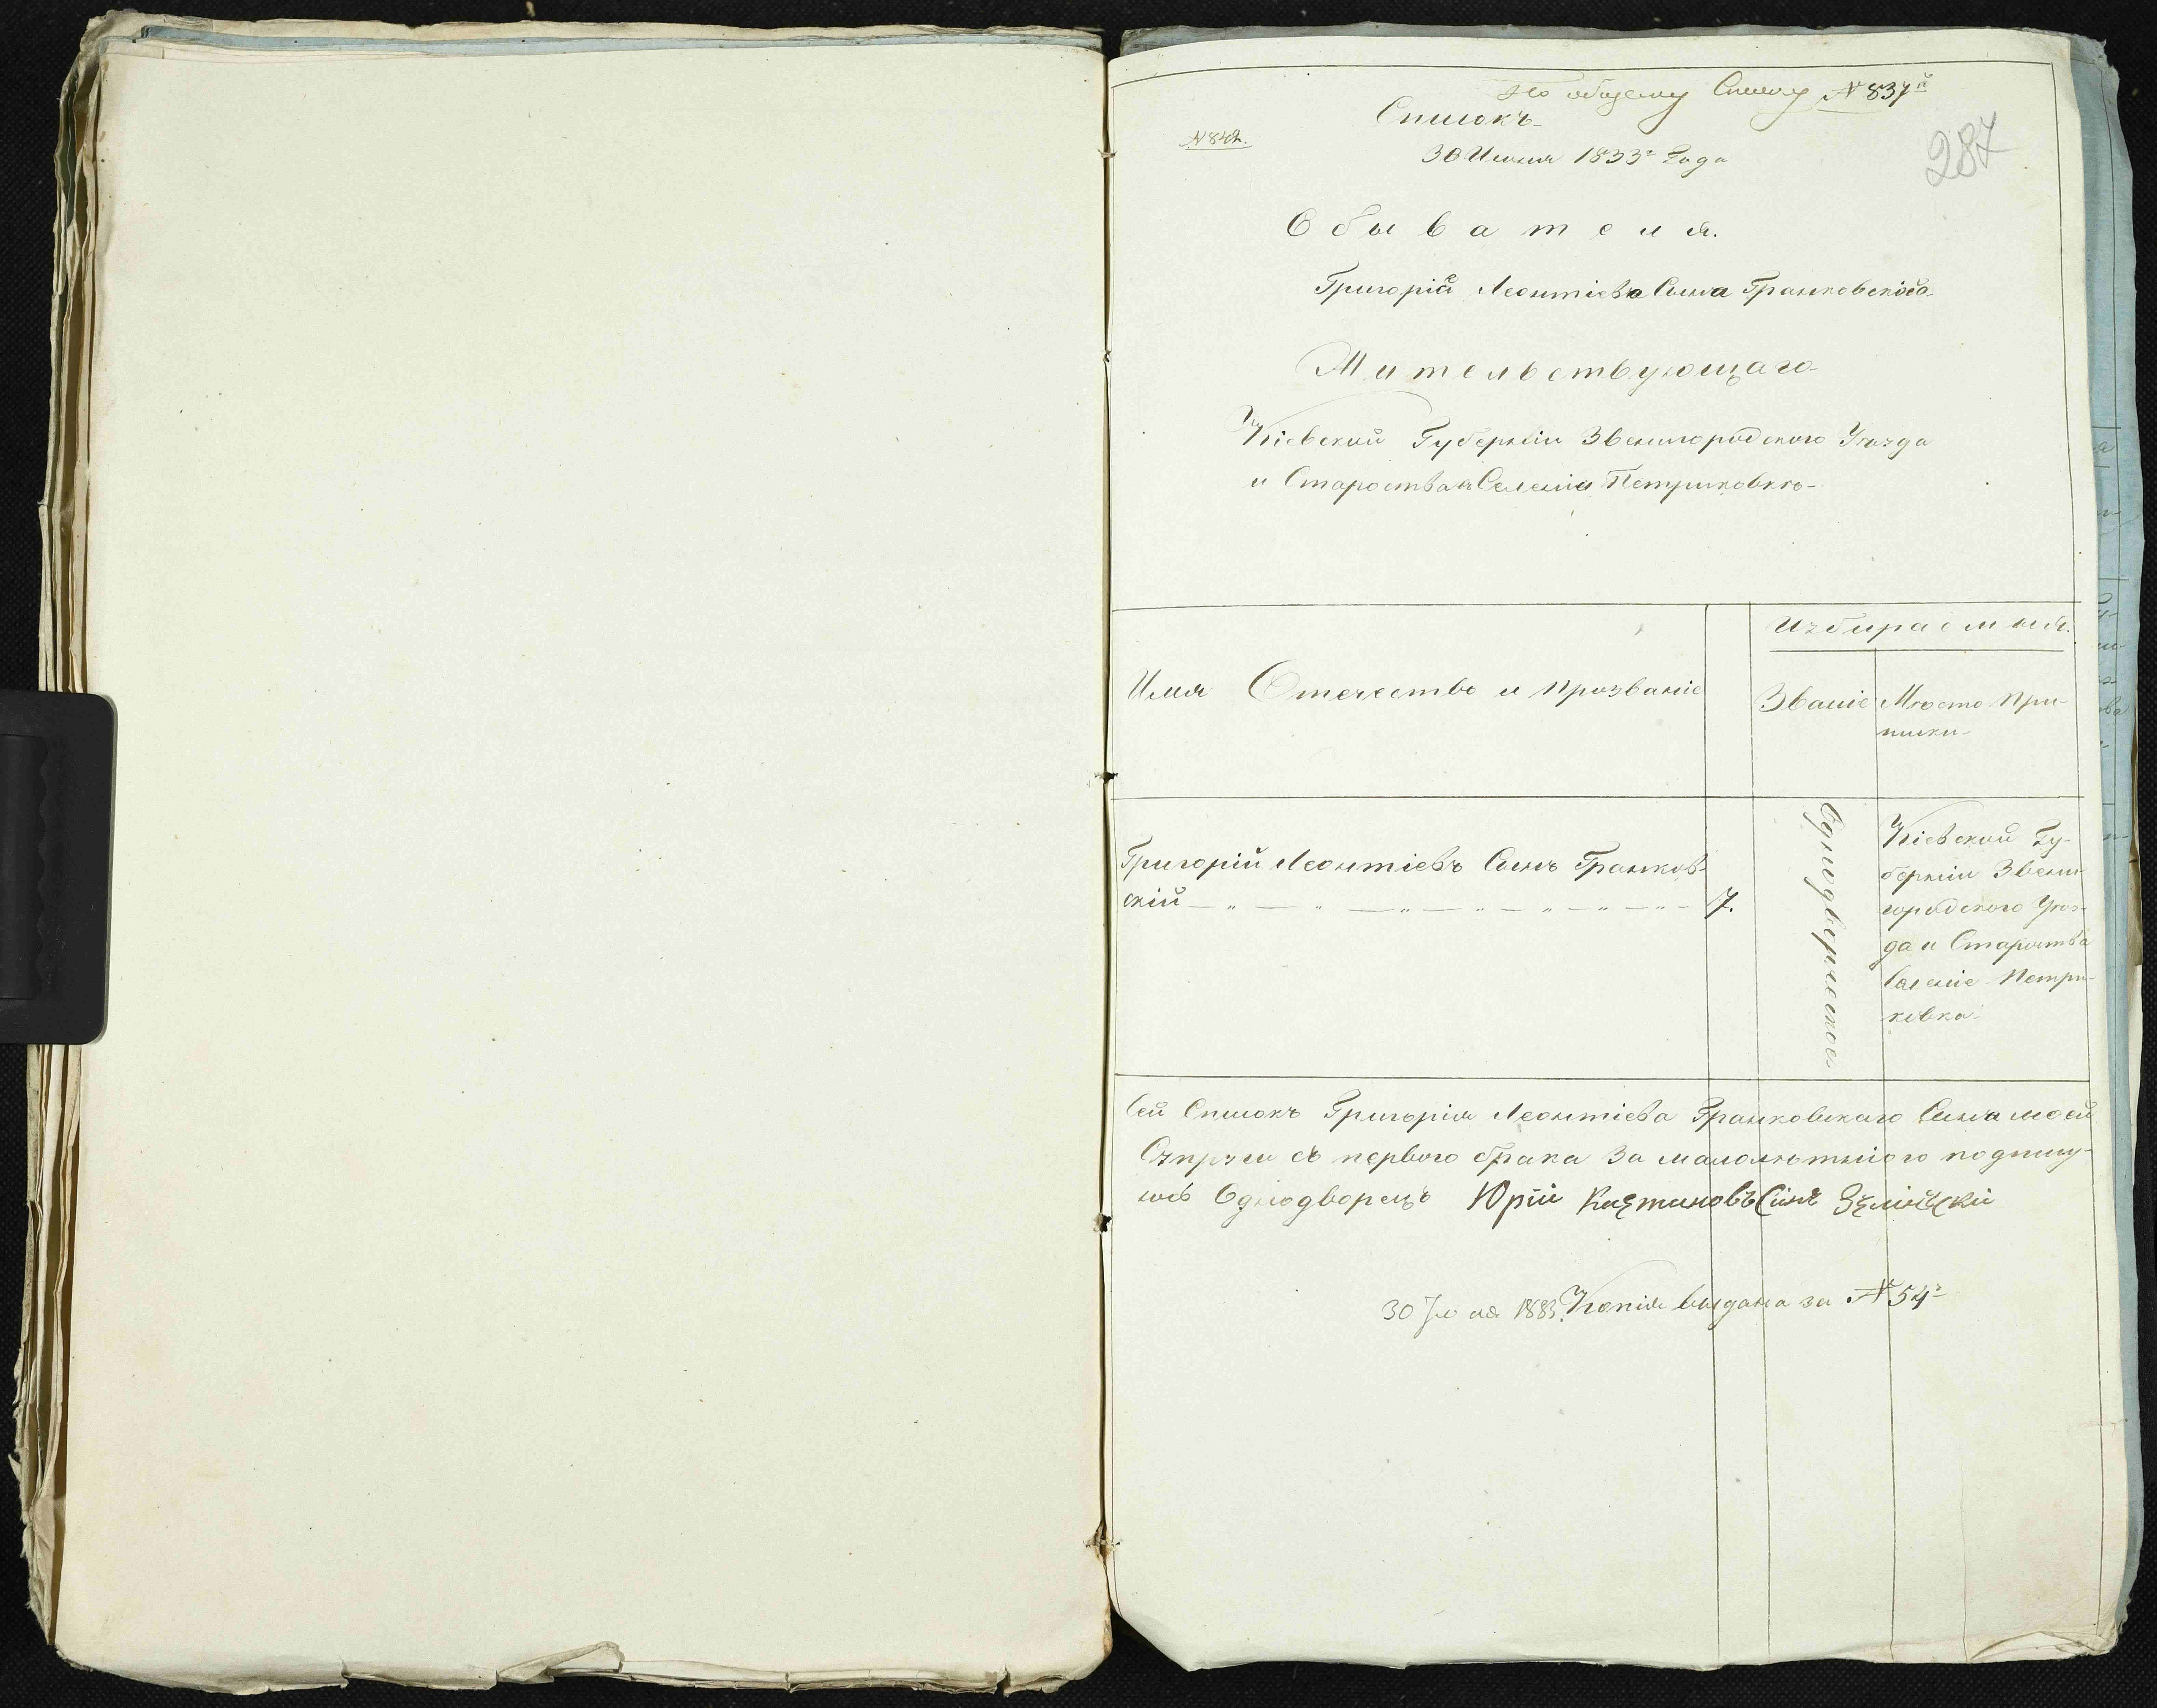 По общему Списку № 837й
Списокъ
№ 842.
30 Июня 1833го Года
287
Обывателя.
Григорія Леонтіева Сына Гранковского
Жительствующаго
Кіевской Губерніи Звенигородского Уѣзда
и Староства Селенія Петриковкѣ
Избираемыя.
Имя Отечество и Прозваніе
Званіе
Мѣсто При-
писки
Григорій Леонтіевъ Сынъ Гранков-
скій
7.
Однодворческое
Кіевской Гу-
берніи Звени-
городского Уѣз-
да и Староства
Селеніе Петри-
ковка
Сей Списокъ Григорія Леонтіева Гранковскаго Сына моей
Супруги съ первого брака За малолѣтнього подпису-
юсь Однодворецъ Юрій Сынъ
30 1883. Копія выдана за № 54